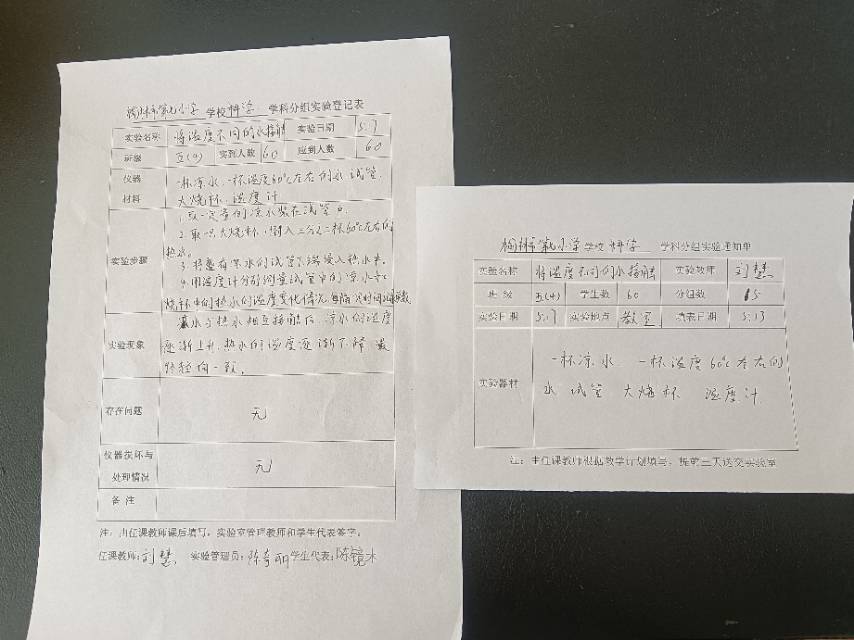 学校 科学 学科分组实验登记表
实验名称 将温度不同的水接触 实验日期 5.17
班级 五(4) 实到人数 60 应到人数 60
仪器 一杯凉水、一杯温度60℃左右的水、试管、
材料 大烧杯、温度计
实验步骤 1.取一定量的凉水装在试管中.
2.取一只大烧杯,倒入三分之二杯60℃左右的
热水。
3.将盛有凉水的试管下端浸入热水中。
4.用温度计分别测量试管中的凉水和
烧杯中的热水的温度变化情况,每隔 时间
实验现象 凉水与热水相互接触后,凉水的温度
逐渐上升,热水的温度逐渐下降 最
终趋向一致。
存在问题 无
仪器损坏与 无
处理情况
备 注
注:由任课教师课后填写,实验室管理教师和学生代表签字。
任课教师:刘慧 实验管理员:陈奇丽 学生代表:陈镜木
学校 科学 学科分组实验通知单
实验名称 将温度不同的水接触 实验教师 刘慧
班 级 五(4) 学生数 60 分组数 15
实验日期 5.17 实验地点 教室 填表日期 5.13
实验器材 一杯凉水、一杯温度60℃左右的
水 试管 大烧杯 温度计
注:由任课教师根据教学计划填写,提前三天送交实验室